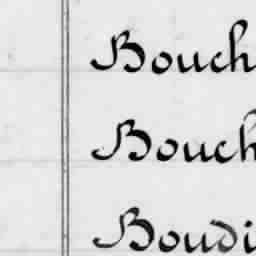 Bouch
Bouch
Boudi